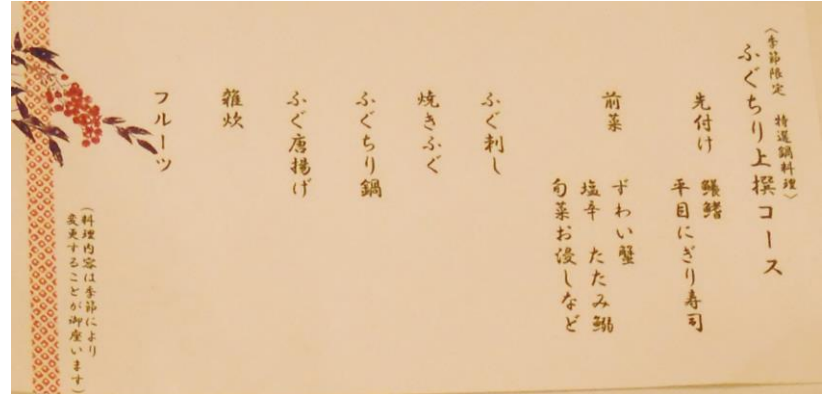 〈季節限定 特選鍋料理〉
ふぐちり上撰コース
先付け 鱶鰭
平目にぎり寿司
前菜 ずわい蟹
塩辛 たたみ鰯
旬菜お浸しなど
ふぐ刺し
焼きふぐ
ふぐちり鍋
ふぐ唐揚げ
雑炊
フルーツ
(料理内容は季節により
変更することが御座います)